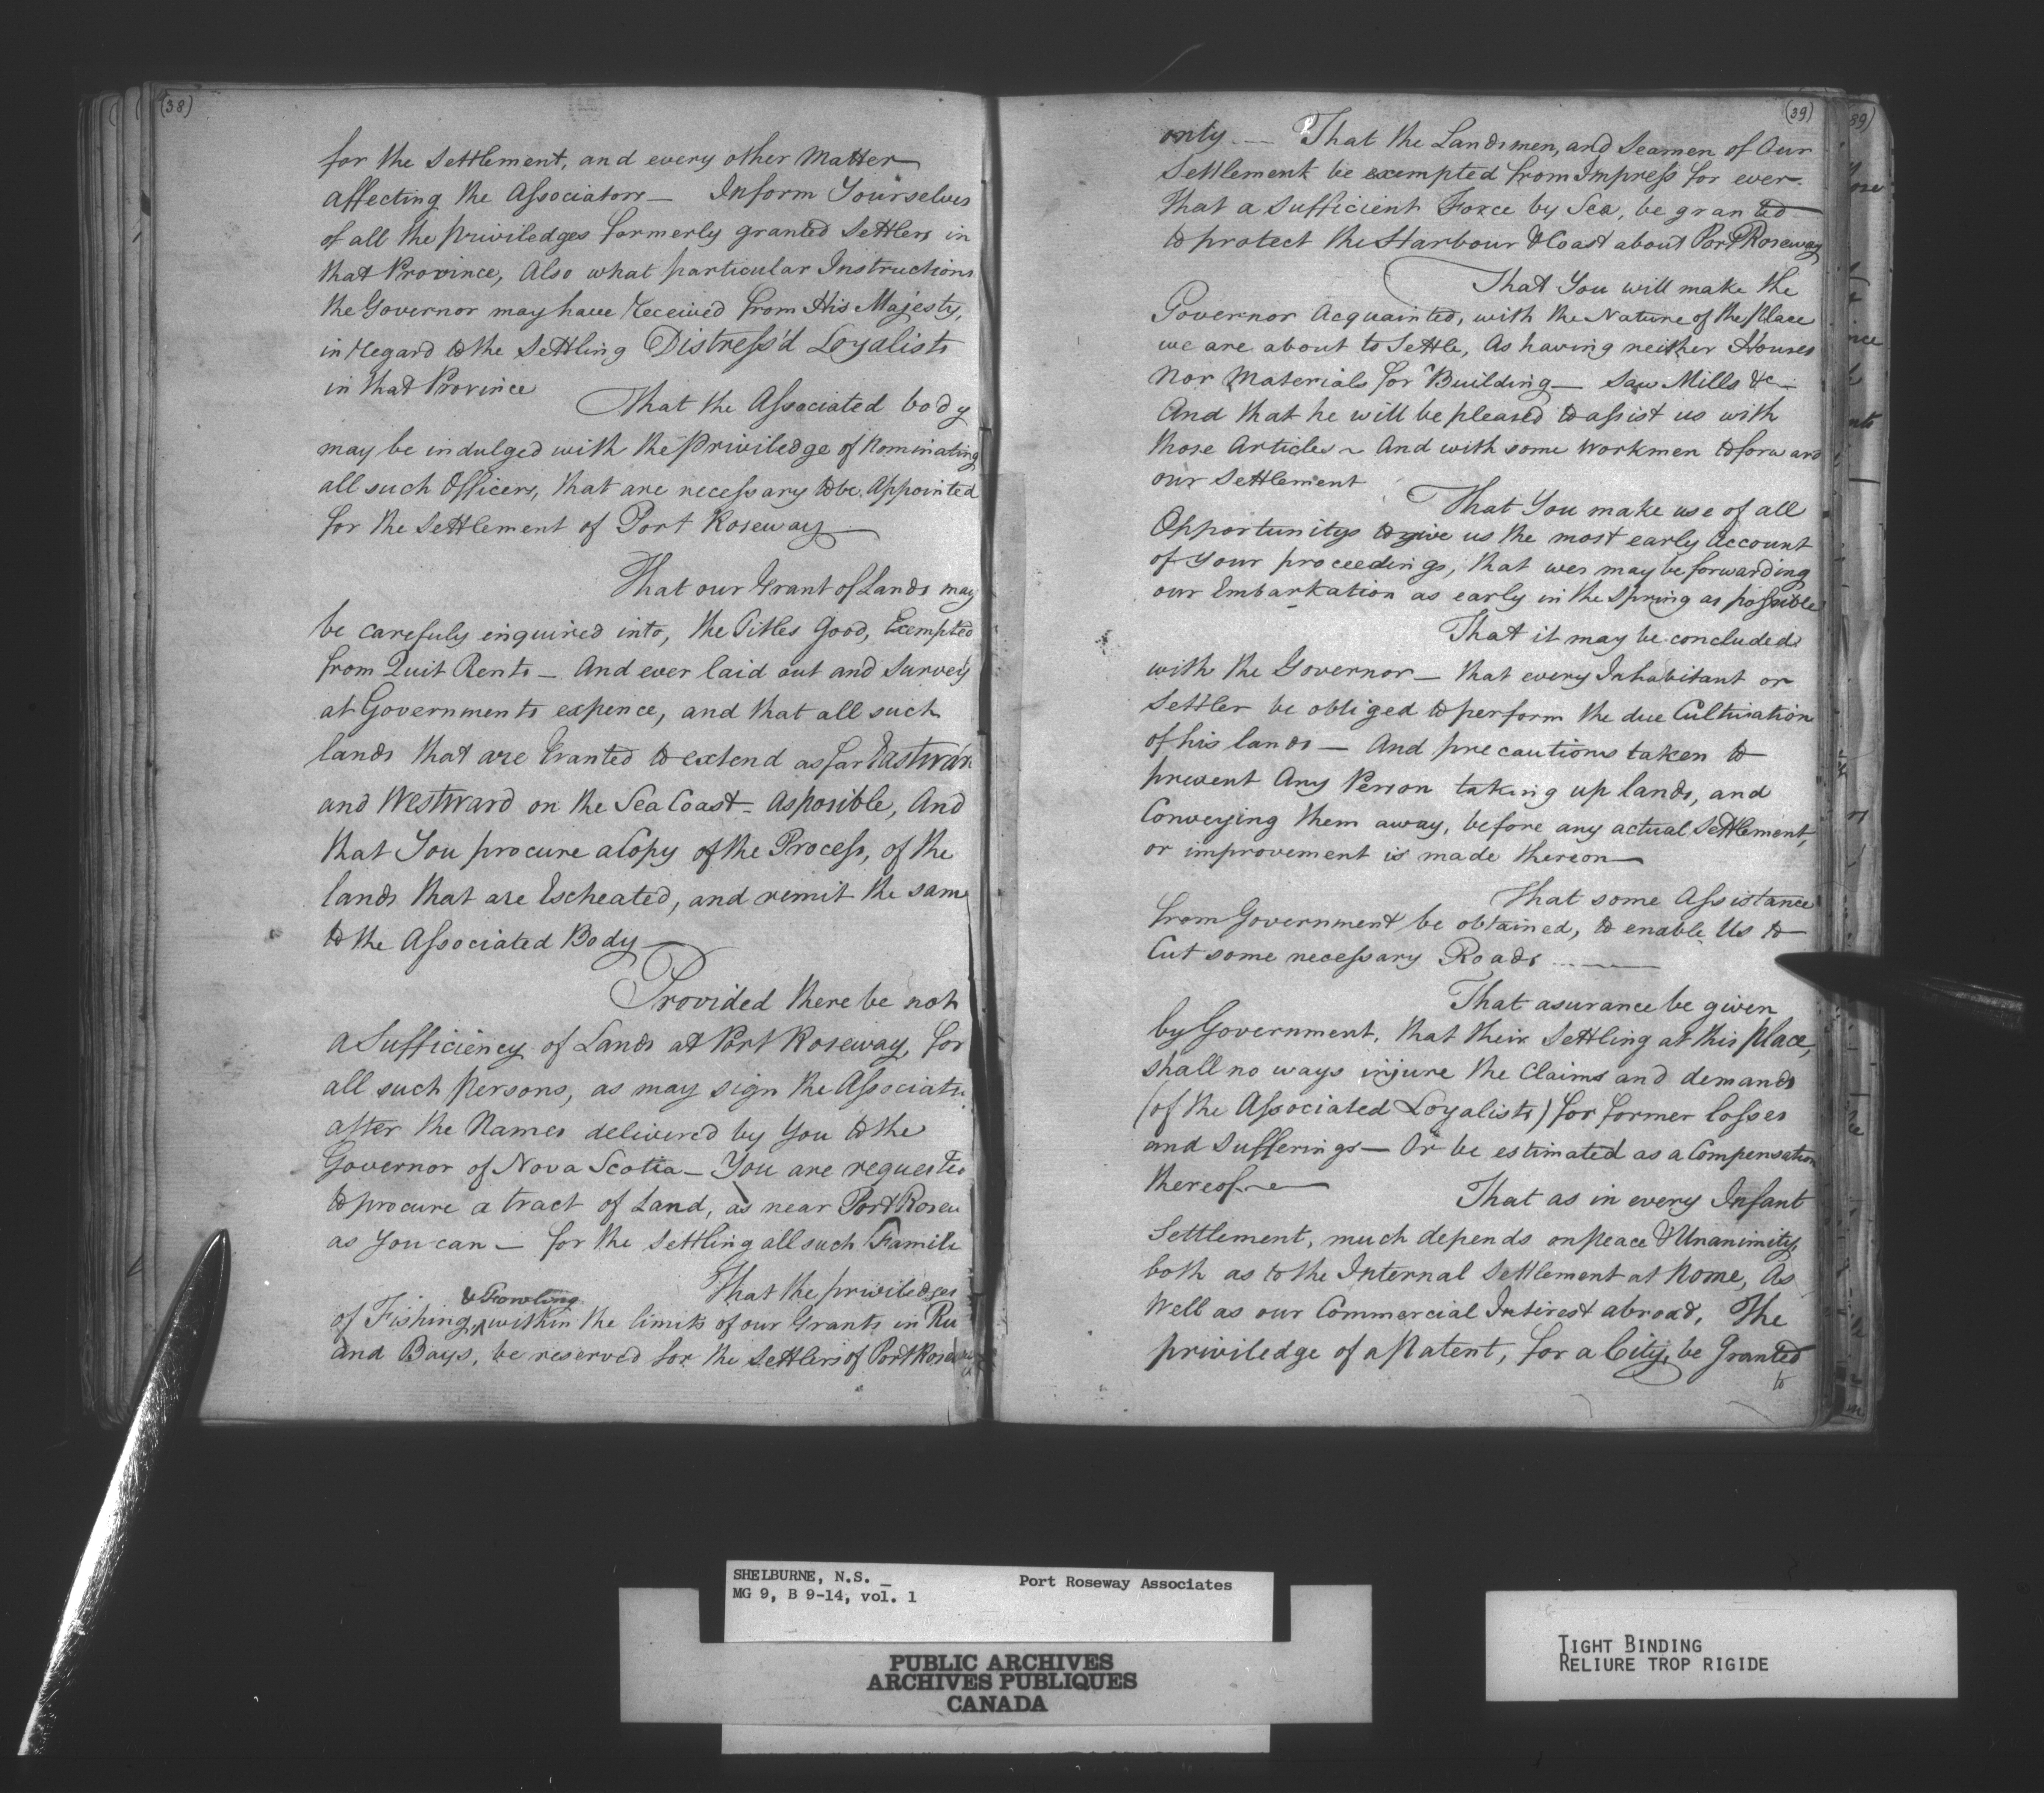 (38)
for the Settlement, and every other Matter
affecting the Associators — Inform Yourselves
of all the priviledges formerly granted Settlers in
that Province, Also what particular Instructions
the Governor may have received from His Majesty,
in regard to the Settling Distress'd Loyalists
in that Province
That the Associated body
may be indulged with the priviledge of Nominating
all such Officers, that are necessary to be Appointed
for the Settlement of Port Roseway —
That our Grant of Lands may
be carefuly enquired into, the Titles Good, Exempted
from Quit Rents — And ever laid out and Survey'd
at Governments expence, and that all such
lands that are Granted to extend as far Eastward
and Westward on the Sea Coast — As posible, And
that You procure a Copy of the Process, of the
lands that are Escheated, and remit the same
to the Associated Body —
Provided there be not
a Sufficiency of Lands at Port Roseway, for
all such Persons, as may sign the Associatn
after the Names delivered by You to the
Governor of Nova Scotia — You are requested
to procure a tract of Land, as near Port Rosew
as You can — for the Settling all such Famili
That the priviledges
& Fowling
of Fishing, ^ within the limits of our Grants in Ri
and Bays, be reserved for the Settlers of Port Rose
(39)
only — That the Landsmen, and Seamen of Our
Settlement be exempted from Impress for ever.
That a Sufficient Force by Sea, be granted
to protect the Harbour & Coast about Port Roseway
That You will make the
Governor Acquainted, with the Nature of the place
we are about to Settle, As having neither Houses
Nor Materials for Building — Saw Mills &c —
And that he will be pleased to assist us with
those Articles ~ And with some Workmen to forward
our Settlement
That You make use of all
Opportunitys to give us the most early Account
of Your proceedings, that wee may be forwarding
our Embarkation as early in the Spring as possible
That it may be concluded
with the Governor — that every Inhabitant or
Settler be obliged to perform the due Cultivation
of his lands — And precautions taken to
prevent Any Person taking up lands, and
Conveying them away, before any actual Settlement,
or improvement is made thereon —
That some Assistance
from Government be obtained, to enable Us to
Cut some necessary Roads —
That asurance be given
by Government, that their Settling at this place,
shall no ways injure the Claims and demands
(of the Associated Loyalists) for former losses
and Sufferings — Or be estimated as a Compensation
thereof —
That as in every Infant
Settlement, much depends on peace & Unanimity,
both as to the Internal Settlement at home, As
Well as our Commercial Intirest abroad, The
priviledge of a Patent, for a City, be Granted
to
SHELBURNE, N.S. _ Port Roseway Associates
MG 9, B 9-14, vol. 1
PUBLIC ARCHIVES
ARCHIVES PUBLIQUES
CANADA
TIGHT BINDING
RELIURE TROP RIGIDE